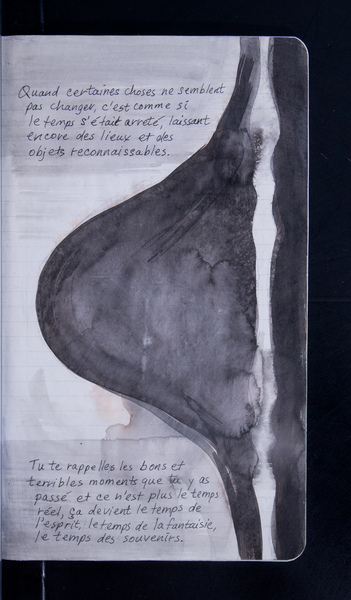 Quand certaines choses ne semblent
pas changer, c'est comme si
le temps s'était arrêté, laissant
encore des lieux et des
objets reconnaissables...
Tu te rappelles les bons et
terribles moments que tu y as
passé et ce n'est plus le temps
réel, ça devient le temps de
l'esprit, le temps de la fantaisie,
le temps des souvenirs.